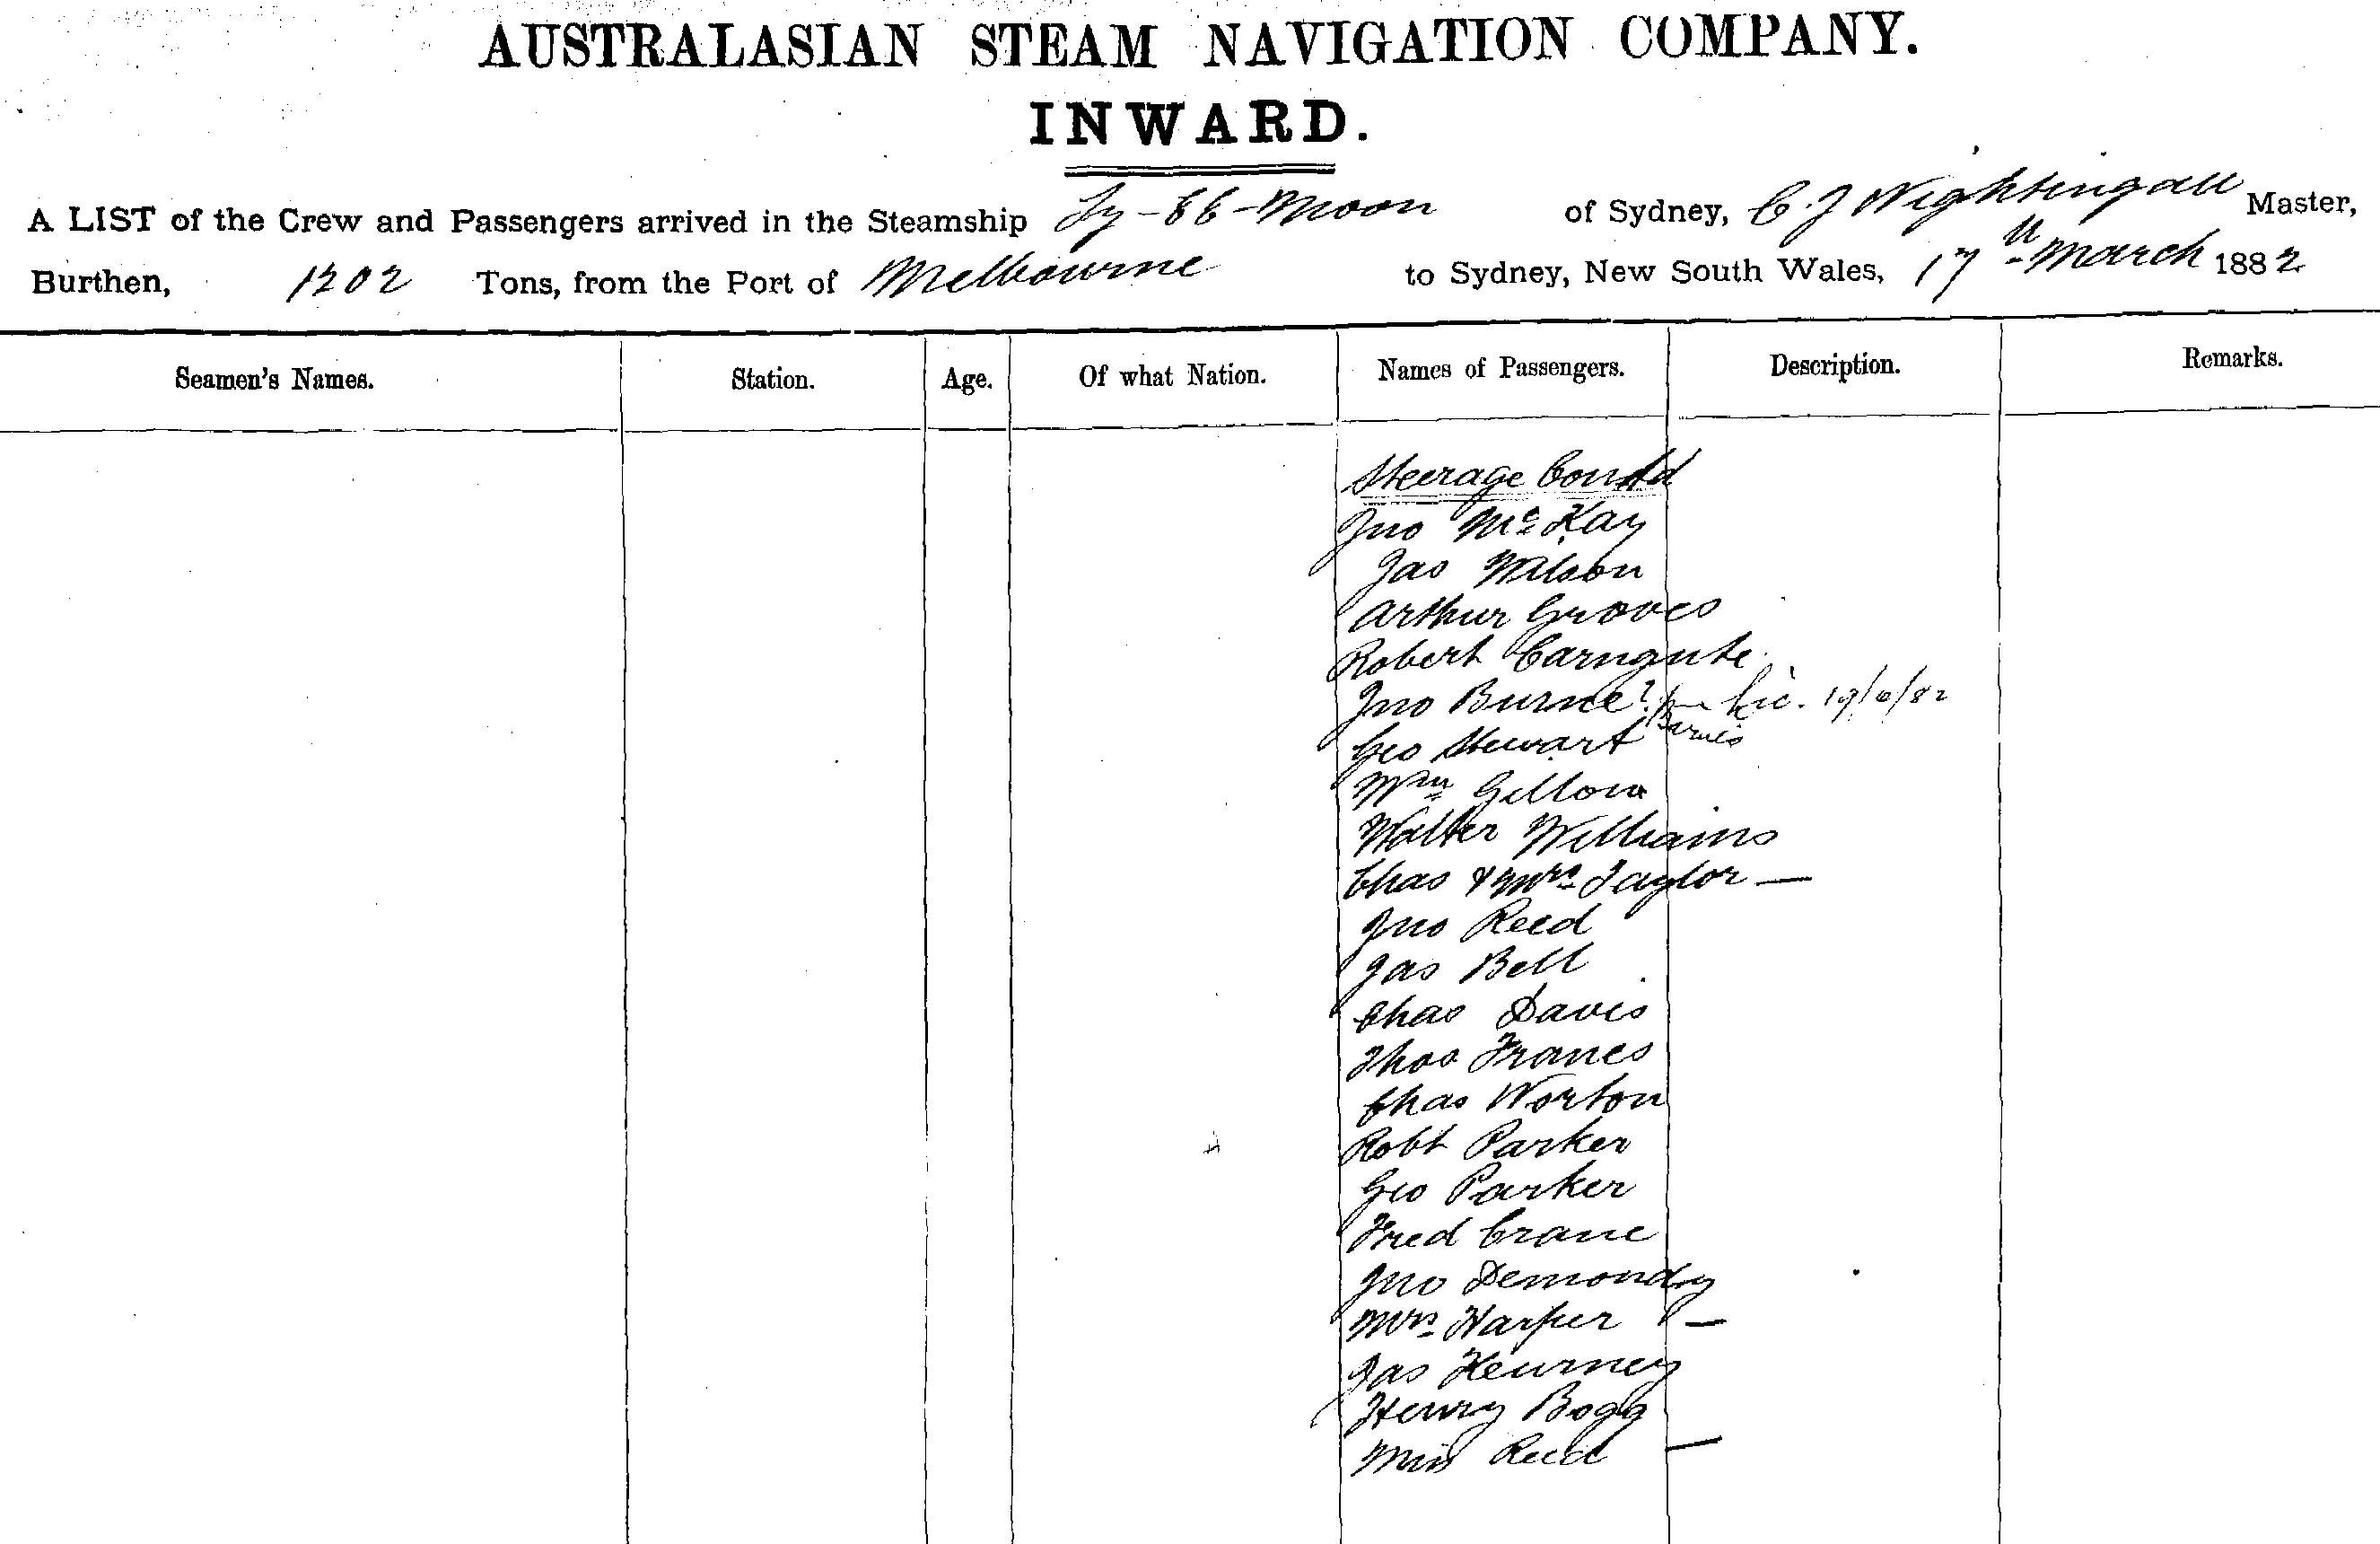 AUSTRALASIAN STEAM NAVIGATION COMPANY.
INWARD.
A LIST of the Crew and Passengers arrived in the Steamship Ly-ee-Moon of Sydney, C. J Nightingall Master,
Burthen, 1202 Tons, from the Port of Melbourne to Sydney, New South Wales, 17th March 1882
Seamen's Names. Station. Age. Of what Nation. Names of Passengers. Description. Remarks.
Steerage Contd
Jno McKay
Jas Wilson
Arthur Groves
Robert
Jno Burne? Lic. 19/6/82
Barnes
Geo Stewart
Wm Gillow
Walter Williams
Chas & Mrs Taylor —
Jno Reed
Jas Bell
Chas Davis
Thos Francs
Chas Worton
Robt Parker
Geo Parker
Fred Crane
Jno Demondy
Mrs Harper —
Jas Heurney
Henry Bogg
Miss Reed —